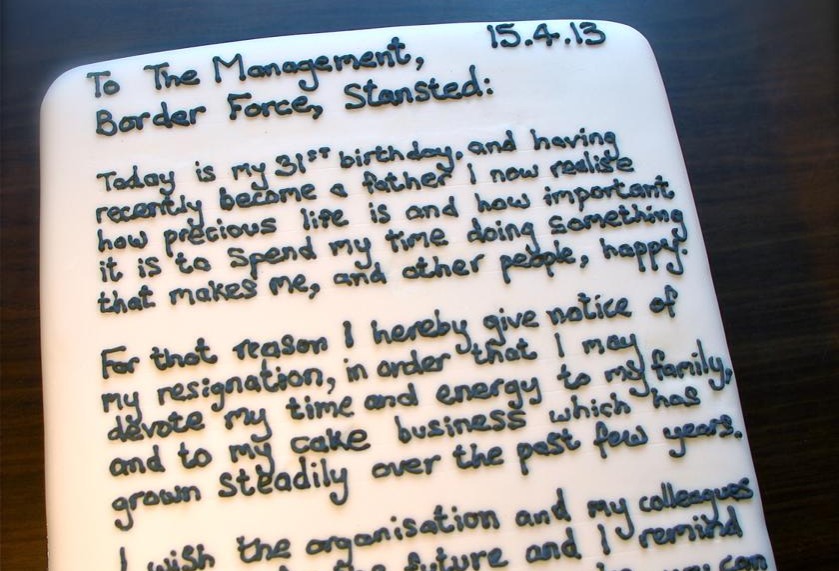 15.4.13
To The Management,
Border Force, Stansted:
Today is my 31ST birthday, and having
recently become a father I now realise
how precious life is and how important
it is to spend my time doing something
that makes me, and other people, happy.
For that reason I hereby give notice of
my resignation, in order that I may
devote my time and energy to my family,
and to my cake business which has
grown steadily over the past few years.
I wish the organisation and my colleagues
the future and I remind
can